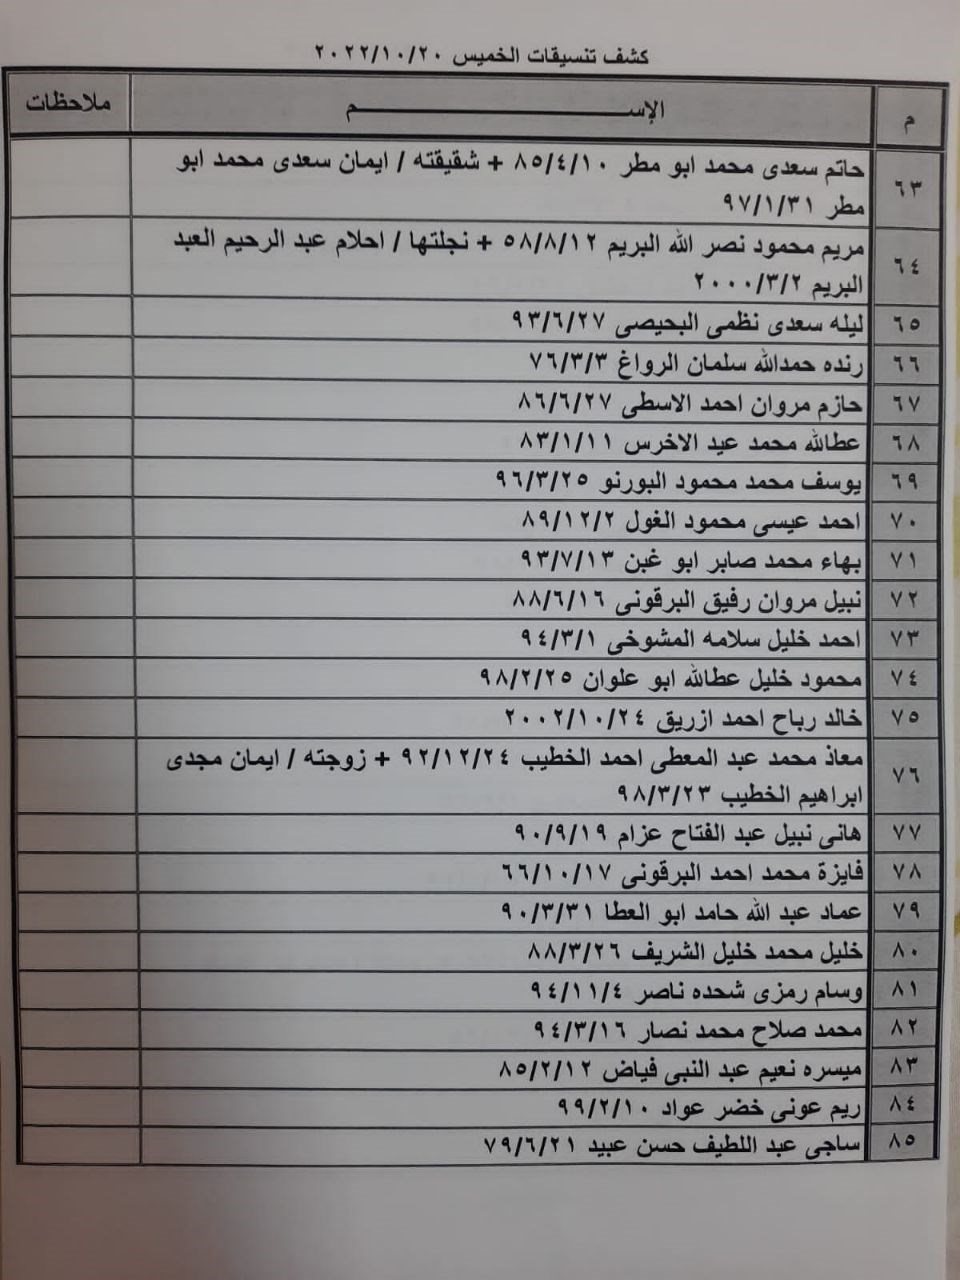 كشف تنسيقات الخميس ٢٠٢٢/١٠/٢٠
م الإســـــــــــــــــــــــــم ملاحظات
٦٣ حاتم سعدى محمد ابو مطر ٨٥/٤/١٠ + شقيقته / ايمان سعدى محمد ابو
مطر ٩٧/١/٣١
٦٤ مريم محمود نصر الله البريم ٥٨/٨/١٢ + نجلتها / احلام عبد الرحيم العبد
البريم ٢٠٠٠/٣/٢
٦٥ ليله سعدى نظمى البحيصى ٩٣/٦/٢٧
٦٦ رنده حمدالله سلمان الرواغ ٧٦/٣/٣
٦٧ حازم مروان احمد الاسطى ٨٦/٦/٢٧
٦٨ عطالله محمد عيد الاخرس ٨٣/١/١١
٦٩ يوسف محمد محمود البورنو ٩٦/٣/٢٥
٧٠ احمد عيسى محمود الغول ٨٩/١٢/٢
٧١ بهاء محمد صابر ابو غبن ٩٣/٧/١٣
٧٢ نبيل مروان رفيق البرقونى ٨٨/٦/١٦
٧٣ احمد خليل سلامه المشوخى ٩٤/٣/١
٧٤ محمود خليل عطالله ابو علوان ٩٨/٢/٢٥
٧٥ خالد رباح احمد ازريق ٢٠٠٢/١٠/٢٤
٧٦ معاذ محمد عبد المعطى احمد الخطيب ٩٢/١٢/٢٤ + زوجته / ايمان مجدى
ابراهيم الخطيب ٩٨/٣/٢٣
٧٧ هانى نبيل عبد الفتاح عزام ٩٠/٩/١٩
٧٨ فايزة محمد احمد البرقونى ٦٦/١٠/١٧
٧٩ عماد عبد الله حامد ابو العطا ٩٠/٣/٣١
٨٠ خليل محمد خليل الشريف ٨٨/٣/٢٦
٨١ وسام رمزى شحده ناصر ٩٤/١١/٤
٨٢ محمد صلاح محمد نصار ٩٤/٣/١٦
٨٣ ميسره نعيم عبد النبى فياض ٨٥/٢/١٢
٨٤ ريم عونى خضر عواد ٩٩/٢/١٠
٨٥ ساجى عبد اللطيف حسن عبيد ٧٩/٦/٢١